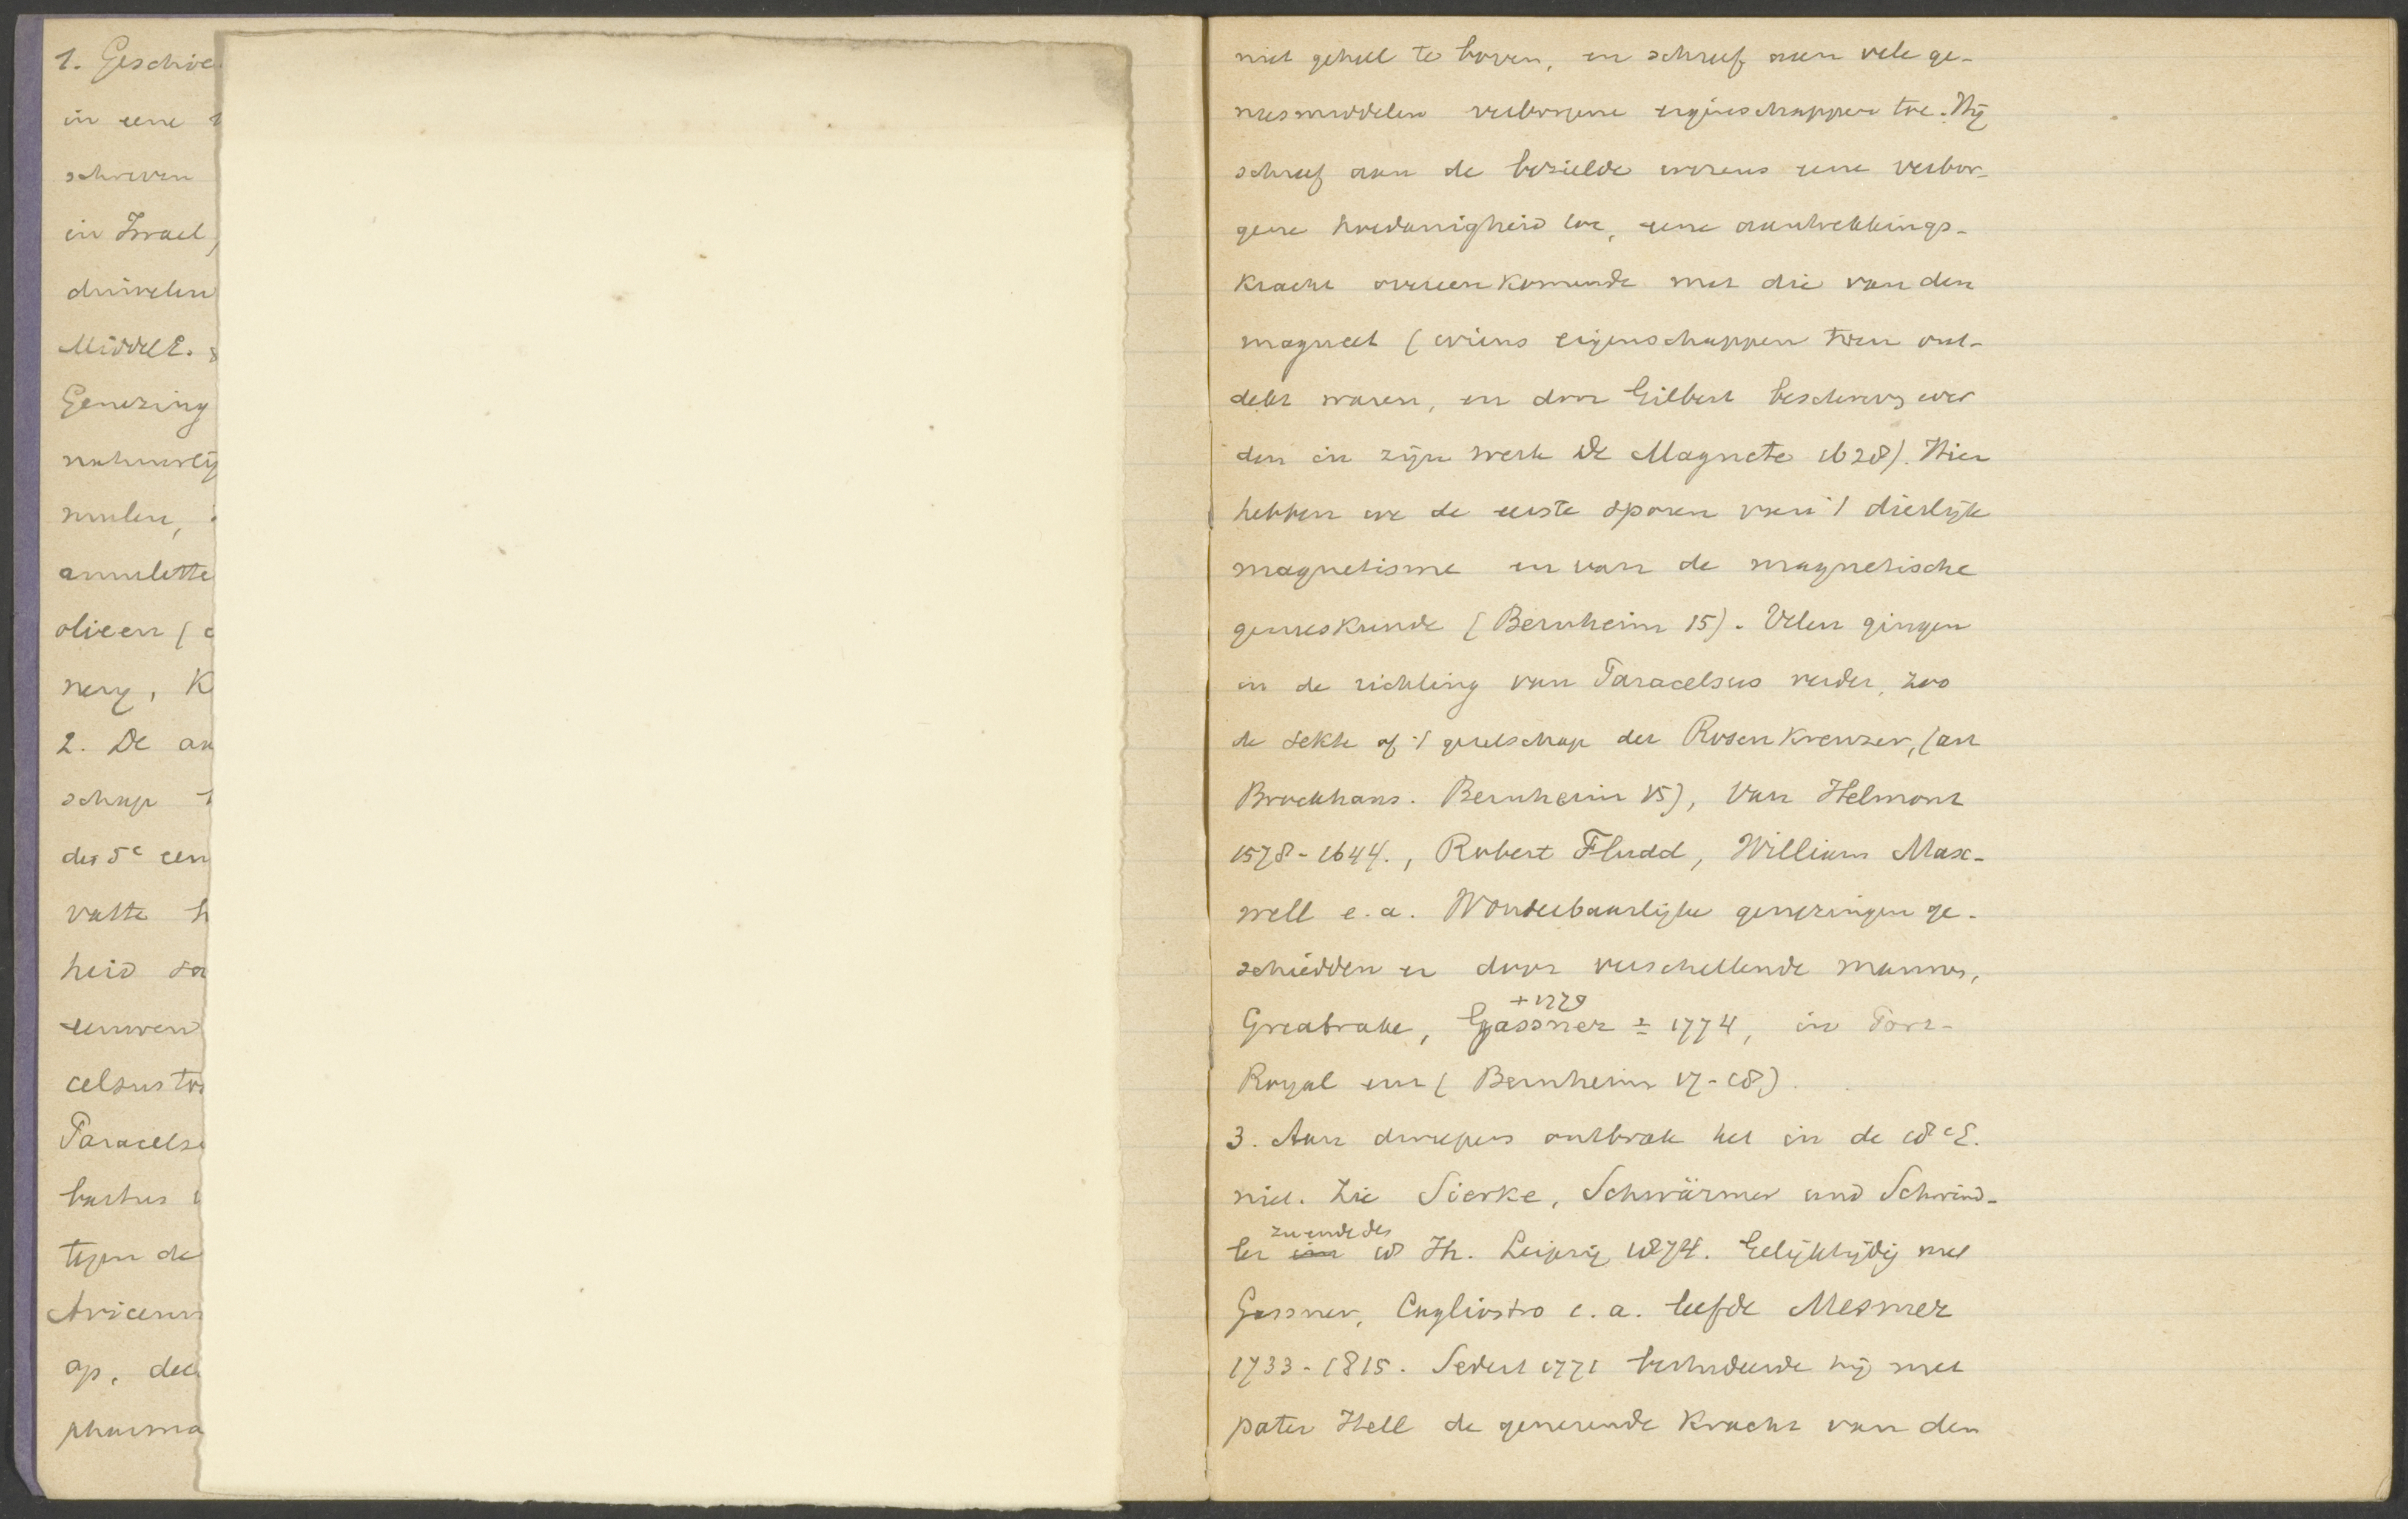 1. Geschie
in eene
schreven
in Israel,
duivelen
MiddelE.
Genezing
natuurlij
amulette
olieen (
nerg, K
2. De an
schap
der 5e een
vatte h
heid
eeuwen
celsus
Paracels
bastus
tegen de
Avicenn
op, dee
pharma
niet geheel te boven, en schreef aan vele ge-
neesmiddelen verborgene eigenschappen toe. Hij
schreef aan de bezielde wezens eene verbor-
gene hoedanigheid toe, eene aantrekkings-
kracht overeenkomende met die van den
magneet (wiens eigenschappen toen ont-
dekt waren, en door Gilbert beschreven wer
den in zijn werk De Magnete 1628). Hier
hebben we de eerste sporen van 't dierlijk
magnetisme en van de magnetische
geneeskunde (Bernheim 15). Velen gingen
in de richting van Paracelsus verder, zoo
de sekte of 't genootschap der Rosenkreuzer, (art
Brockhaus. Bernheim 15), Van Helmont
1578-1644., Robert Fludd, William Max-
well e.a. Wonderbaarlijke genezingen ge-
schiedden er door verschillende mannen,
Greatrake, Gassner +1779 ± 1774, in Port-
Royal enz (Bernheim 17-18).
3. Aan dweepers ontbrak het in de 18e E.
niet. Zie Sierke, Schwärmer und Schwind-
ler im zu ende des 18 Jh. Leipzig 1874. Gelijktijdig met
Gassner, Cagliostro e.a. leefde Mesmer
1733-1815. Sedert 1771 bestudeerde hij met
pater Hell de genezende kracht van den